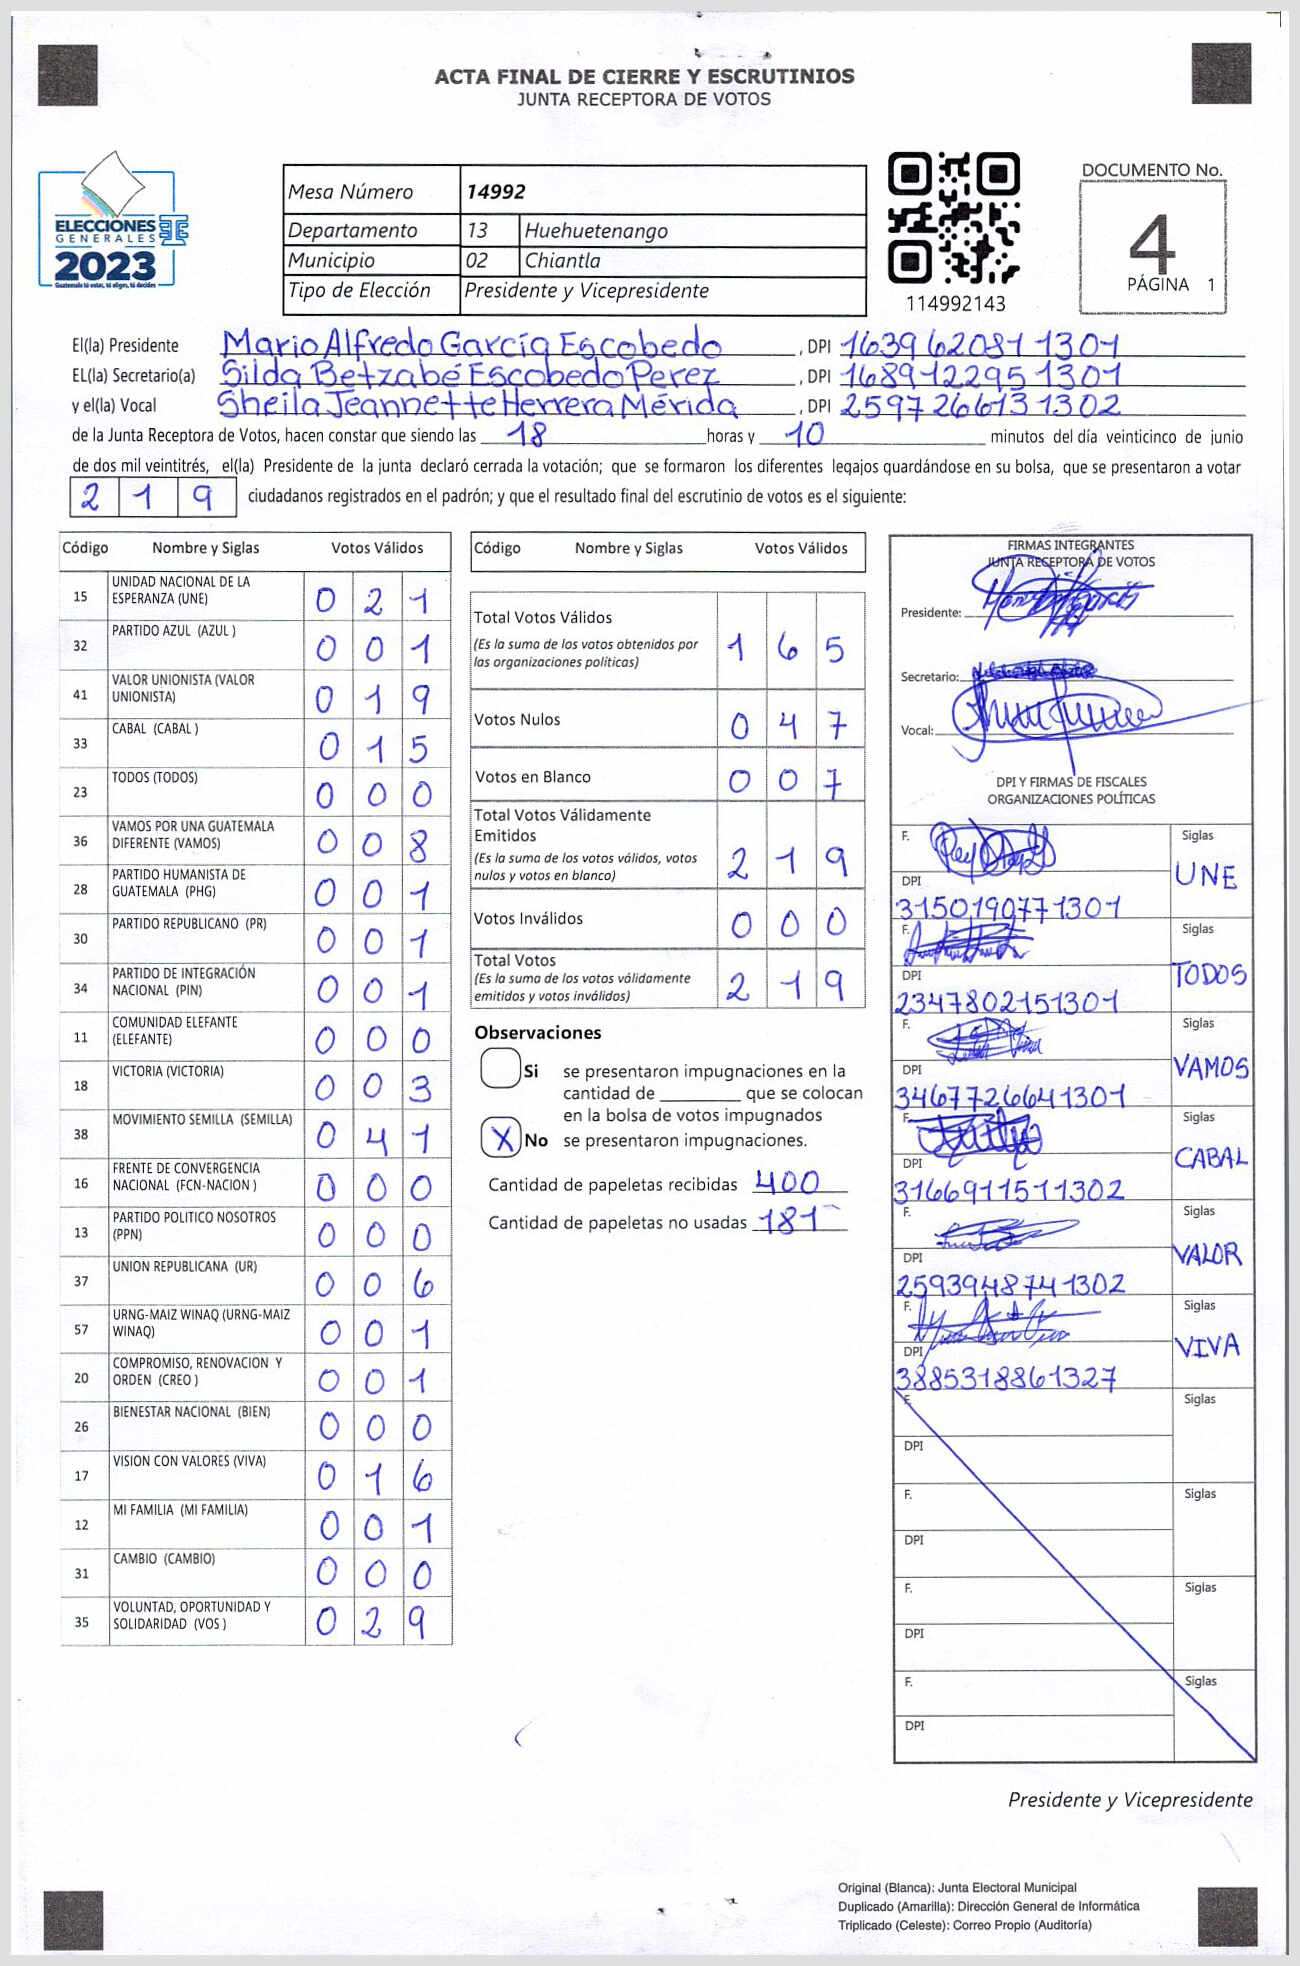 ACTA FINAL DE CIERRE Y ESCRUTINIOS
JUNTA RECEPTORA DE VOTOS
ELECCIONES
GENERALES
2023
Guatemala tú votas, tú eliges, tú decides
Mesa Número 14992
Departamento 13 Huehuetenango
Municipio 02 Chiantla
Tipo de Elección Presidente y Vicepresidente
114992143
DOCUMENTO No.
4
PÁGINA 1
El(la) Presidente Mario Alfredo García Escobedo, DPI 1639620811301
EL(la) Secretario(a) Silda Betzabé Escobedo Perez, DPI 1689122951301
y el(la) Vocal Sheila Jeannette Herrera Mérida, DPI 2597266131302
de la Junta Receptora de Votos, hacen constar que siendo las 18 horas y 10 minutos del día veinticinco de junio
de dos mil veintitrés, el(la) Presidente de la junta declaró cerrada la votación; que se formaron los diferentes legajos guardándose en su bolsa, que se presentaron a votar
2 1 9 ciudadanos registrados en el padrón; y que el resultado final del escrutinio de votos es el siguiente:
Código Nombre y Siglas Votos Válidos
15 UNIDAD NACIONAL DE LA ESPERANZA (UNE) 0 2 1
32 PARTIDO AZUL (AZUL ) 0 0 1
41 VALOR UNIONISTA (VALOR UNIONISTA) 0 1 9
33 CABAL (CABAL ) 0 1 5
23 TODOS (TODOS) 0 0 0
36 VAMOS POR UNA GUATEMALA DIFERENTE (VAMOS) 0 0 8
28 PARTIDO HUMANISTA DE GUATEMALA (PHG) 0 0 1
30 PARTIDO REPUBLICANO (PR) 0 0 1
34 PARTIDO DE INTEGRACIÓN NACIONAL (PIN) 0 0 1
11 COMUNIDAD ELEFANTE (ELEFANTE) 0 0 0
18 VICTORIA (VICTORIA) 0 0 3
38 MOVIMIENTO SEMILLA (SEMILLA) 0 4 1
16 FRENTE DE CONVERGENCIA NACIONAL (FCN-NACION ) 0 0 0
13 PARTIDO POLITICO NOSOTROS (PPN) 0 0 0
37 UNION REPUBLICANA (UR) 0 0 6
57 URNG-MAIZ WINAQ (URNG-MAIZ WINAQ) 0 0 1
20 COMPROMISO, RENOVACION Y ORDEN (CREO ) 0 0 1
26 BIENESTAR NACIONAL (BIEN) 0 0 0
17 VISION CON VALORES (VIVA) 0 1 6
12 MI FAMILIA (MI FAMILIA) 0 0 1
31 CAMBIO (CAMBIO) 0 0 0
35 VOLUNTAD, OPORTUNIDAD Y SOLIDARIDAD (VOS ) 0 2 9
Código Nombre y Siglas Votos Válidos
Total Votos Válidos 1 6 5
(Es la suma de los votos obtenidos por
las organizaciones políticas)
Votos Nulos 0 4 7
Votos en Blanco 0 0 7
Total Votos Válidamente
Emitidos 2 1 9
(Es la suma de los votos válidos, votos
nulos y votos en blanco)
Votos Inválidos 0 0 0
Total Votos 2 1 9
(Es la suma de los votos válidamente
emitidos y votos inválidos)
Observaciones
Si se presentaron impugnaciones en la
cantidad de ________ que se colocan
en la bolsa de votos impugnados
X No se presentaron impugnaciones.
Cantidad de papeletas recibidas 400
Cantidad de papeletas no usadas 181
FIRMAS INTEGRANTES
JUNTA RECEPTORA DE VOTOS
Presidente:
Secretario:
Vocal:
DPI Y FIRMAS DE FISCALES
ORGANIZACIONES POLÍTICAS
F. Siglas UNE
DPI 3150190771301
F. Siglas TODOS
DPI 2347802151301
F. Siglas VAMOS
DPI 3467726641301
F. Siglas CABAL
DPI 3166911511302
F. Siglas VALOR
DPI 2593948741302
F. Siglas VIVA
DPI 3885318861327
F. Siglas
DPI
F. Siglas
DPI
F. Siglas
DPI
F. Siglas
DPI
Presidente y Vicepresidente
Original (Blanca): Junta Electoral Municipal
Duplicado (Amarilla): Dirección General de Informática
Triplicado (Celeste): Correo Propio (Auditoría)